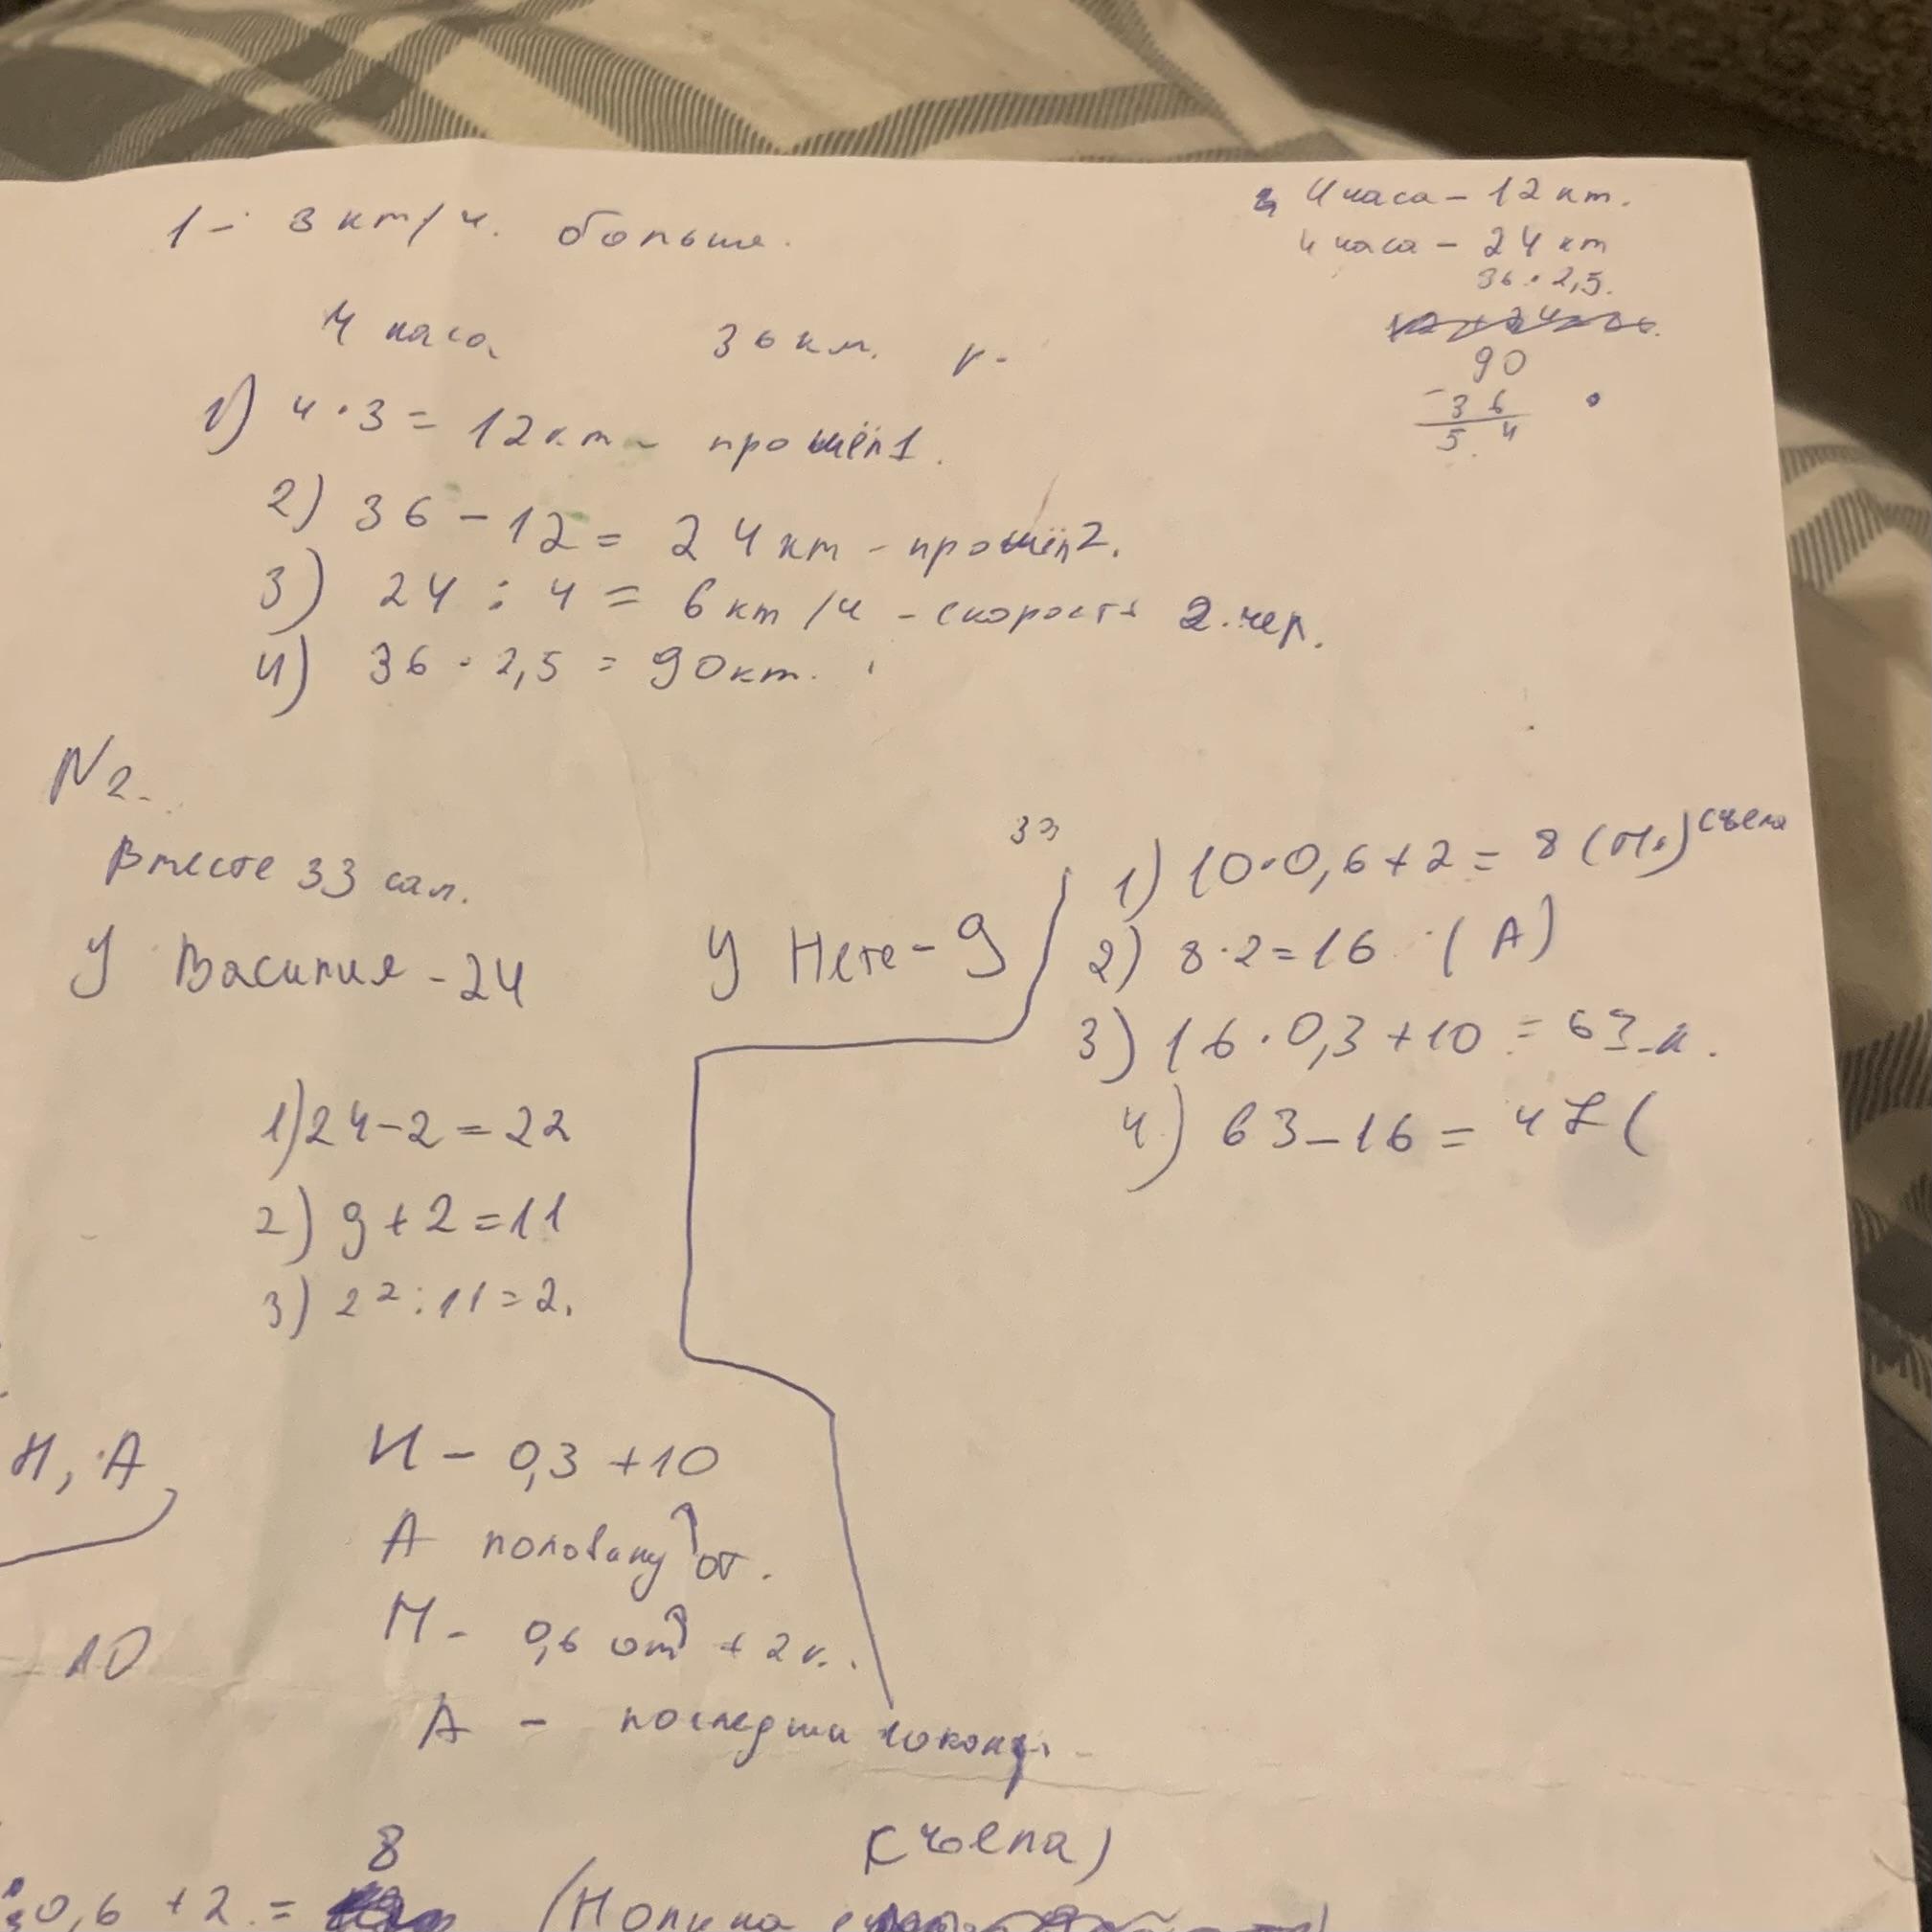 1 - 3 км/ч. больше.
4 часа 36 км. v-
1) 4 · 3 = 12 км - прошёл 1.
2) 36 - 12 = 24 км - прошёл 2.
3) 24 : 4 = 6 км/ч - скорость 2. чер.
4) 36 · 2,5 = 90 км.
4 часа - 12 км.
4 часа - 24 км
36 · 2,5.
90
- 36
54
N2.
Вместе 33 сал.
У Василия - 24
У Пете - 9
33
1) 24 - 2 = 22
2) 9 + 2 = 11
3) 22 : 11 = 2.
1) 10 · 0,6 + 2 = 8 (П.) съела
2) 8 · 2 = 16 (А)
3) 16 · 0,3 + 10 = 63 к.
4) 63 - 16 = 47 (
Н, А,
И - 0,3 + 10
А половину от.
М - 0,6 от + 2 к.
10
А - последние
8
(съела)
0,6 + 2 =